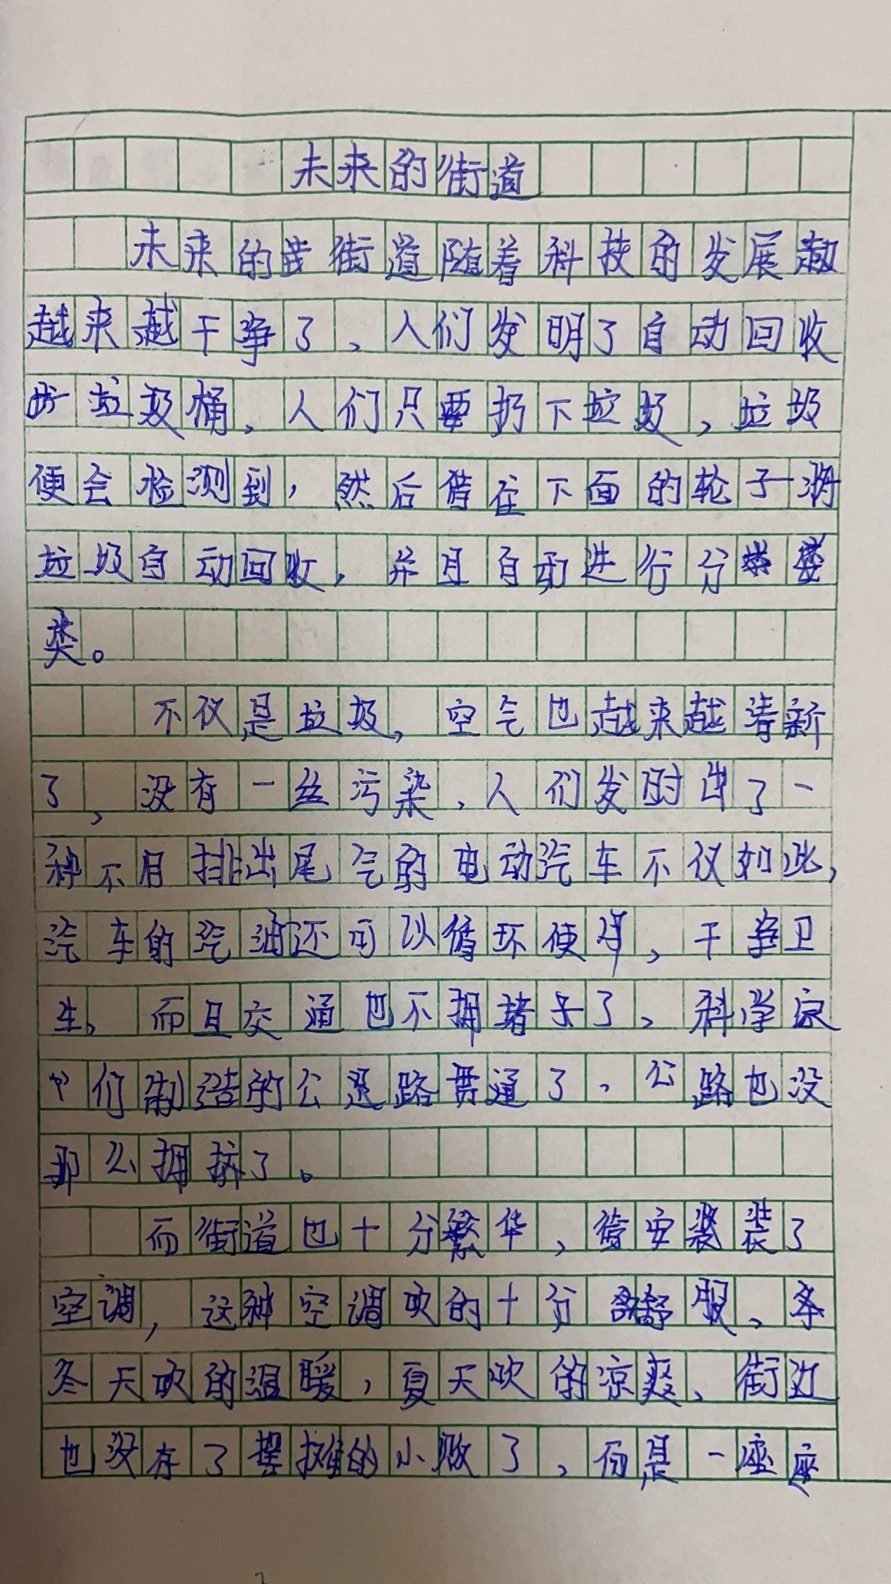 未来的街道
未来的街道随着科技的发展越
越来越干净了、人们发明了自动回收
垃圾桶、人们只要扔下垃圾,垃圾
便会检测到,然后借住下面的轮子将
垃圾自动回收,并且自动进行分
类。
不仅是垃圾,空气也越来越清新
了,没有一丝污染、人们发时出了一
种不用排出尾气的电动汽车不仅如此,
汽车的汽油还可以循环使用,干净卫
生、而且交通也不拥堵了、科学家
们制造的公路贯通了、公路也没
那么拥挤了。
而街道也十分繁华,皆安装了
空调,这种空调吹的十分舒服、冬
冬天吹的温暖,夏天吹的凉爽、街边
也没有了摆摊的小贩了,而是一座座